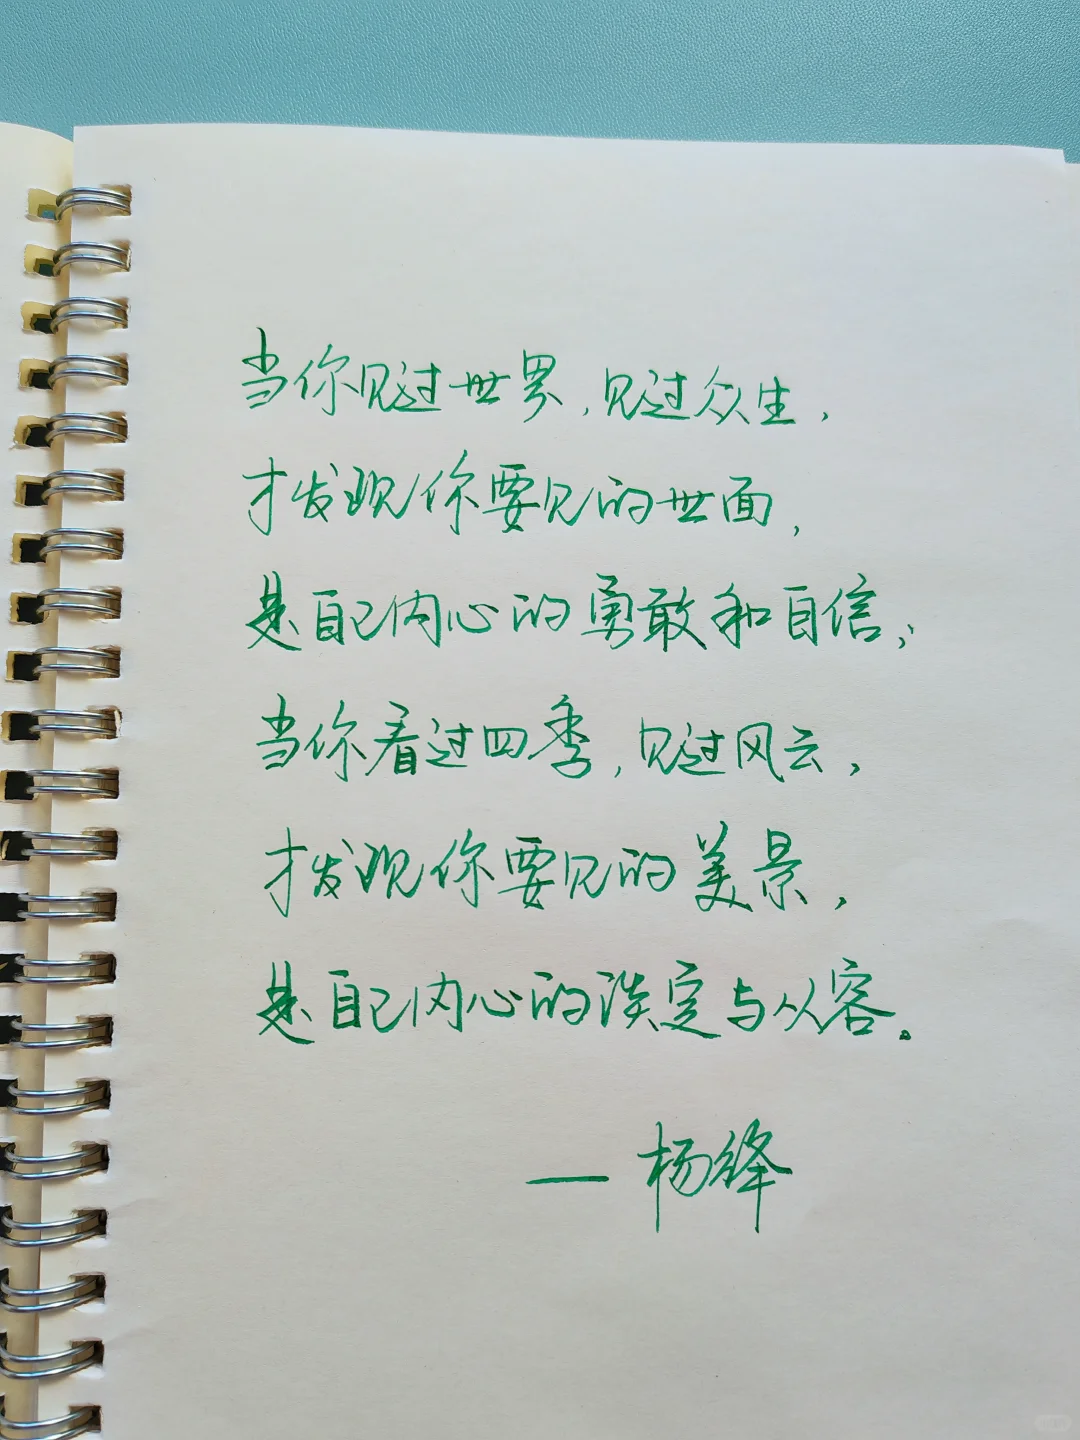 当你见过世界，见过众生，
才发现你要见的世面，
是自己内心的勇敢和自信；
当你看过四季，见过风云，
才发现你要见的美景，
是自己内心的淡定与从容。
— 杨绛